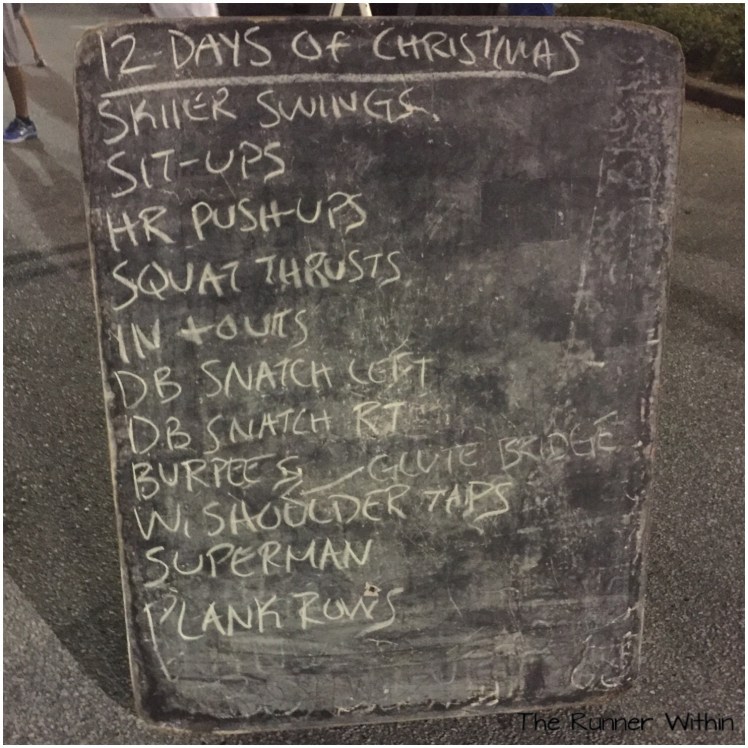 12 DAYS OF CHRISTMAS
SKIIER SWINGS.
SIT-UPS
HR PUSH-UPS
SQUAT THRUSTS
IN + OUTS
DB SNATCH LEFT
DB SNATCH RT
BURPEES GLUTE BRIDGE
W/ SHOULDER TAPS
SUPERMAN
PLANK ROWS
The Runner Within